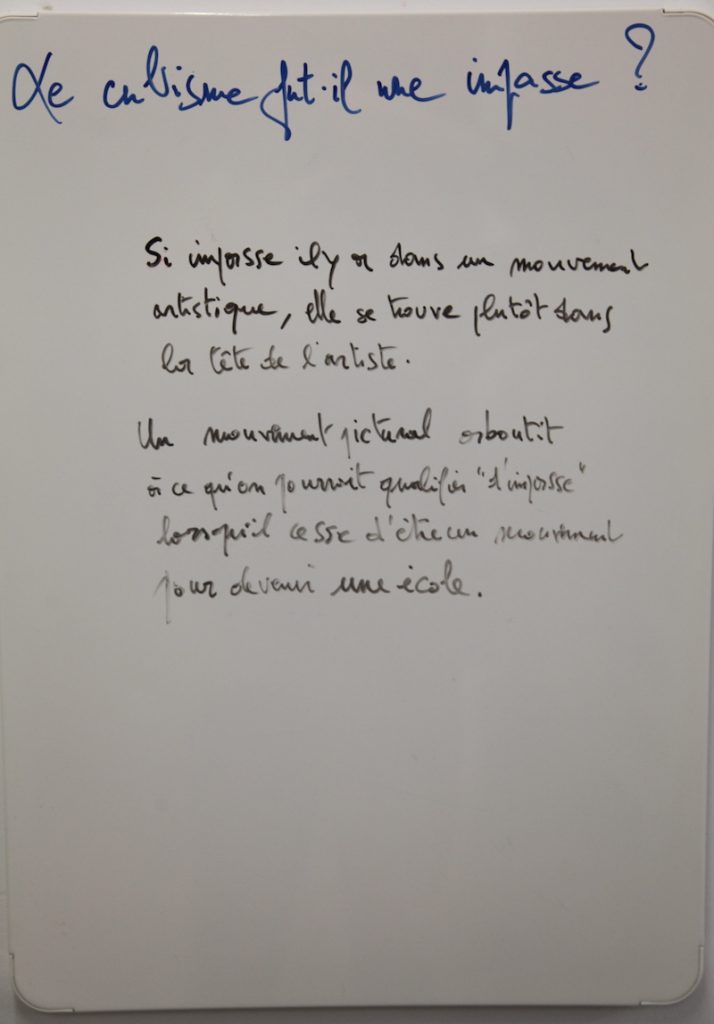 Le cubisme fut-il une impasse ?
Si impasse il y a dans un mouvement
artistique, elle se trouve plutôt dans
la tête de l'artiste.
Un mouvement pictural aboutit
à ce qu'on pourrait qualifier "d'impasse"
lorsqu'il cesse d'être un mouvement
pour devenir une école.